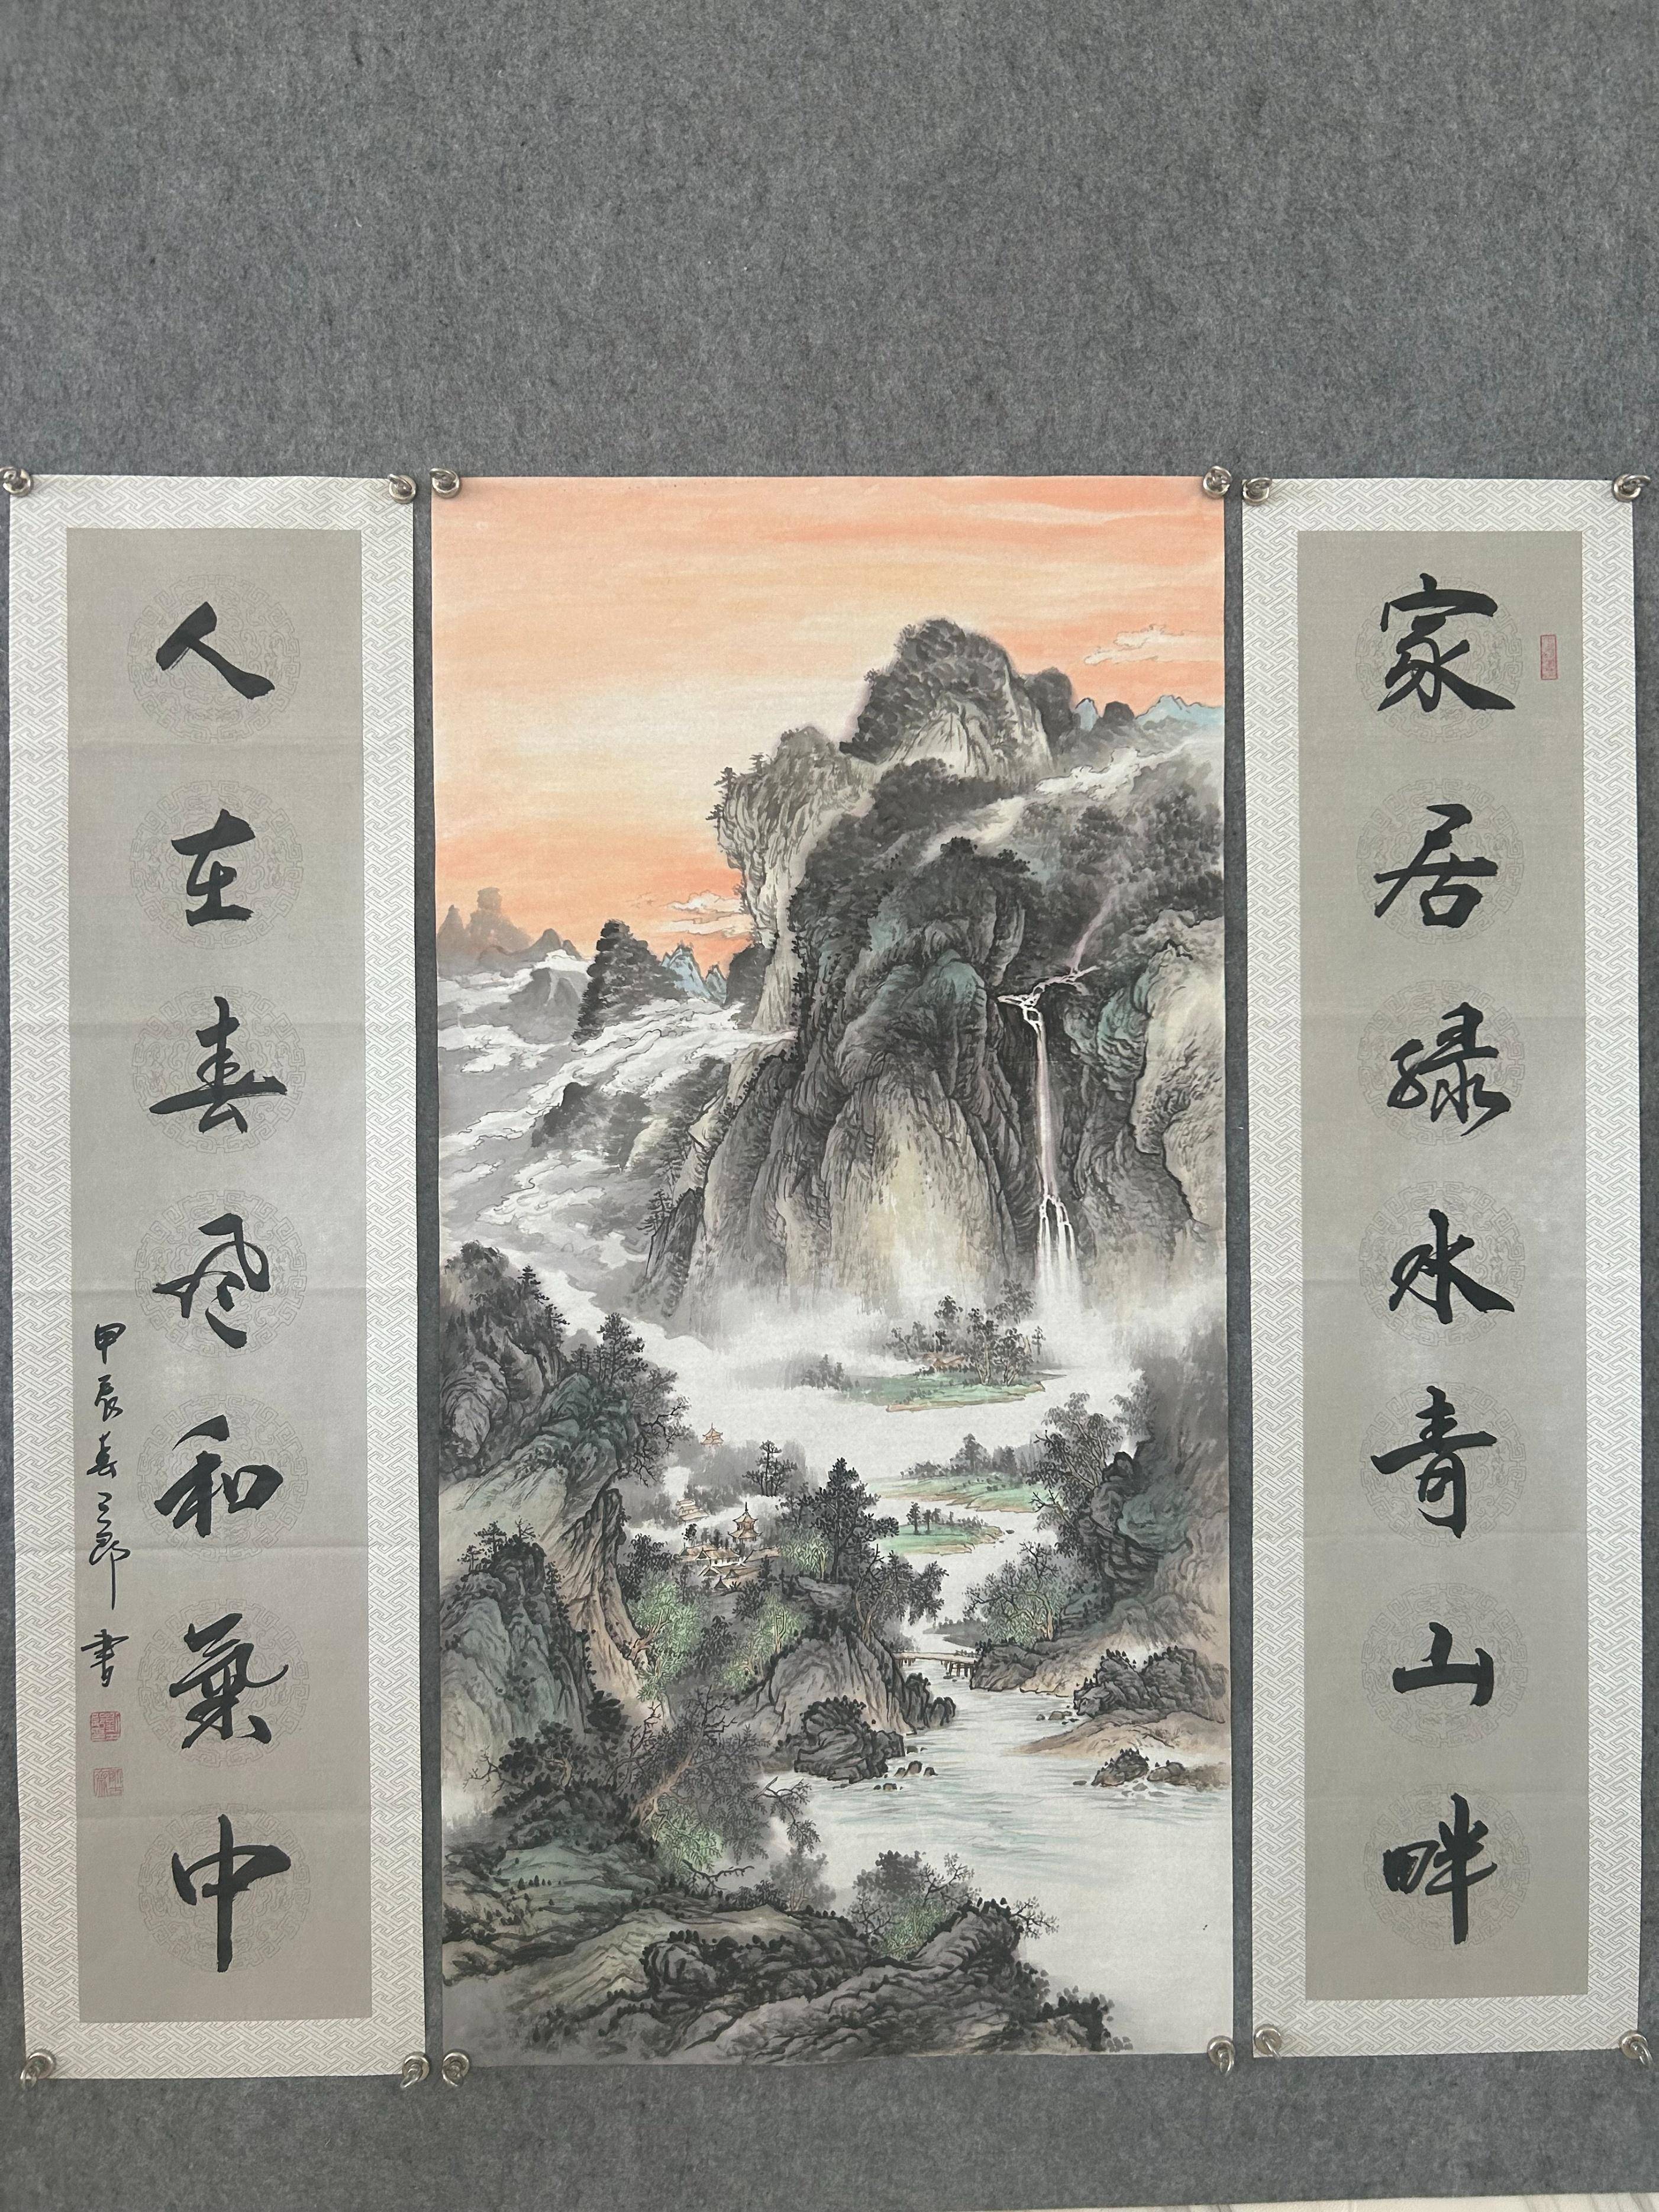 家居绿水青山畔
人在春风和气中
甲辰春三郎书